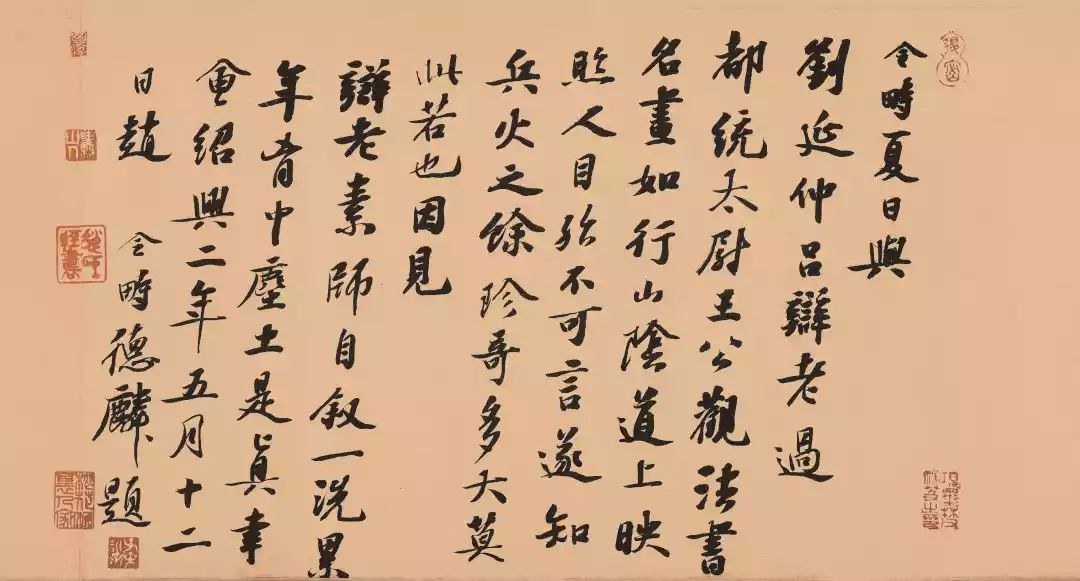 令畤夏日與
劉延仲呂辯老過
都統太尉王公觀法書
名畫如行山陰道上映
照人目殆不可言遂知
兵火之餘珍哥多大莫
此若也因見
辯老素師自叙一洗累
年胷中塵土是真幸
會紹興二年五月十二
日趙令畤德麟題